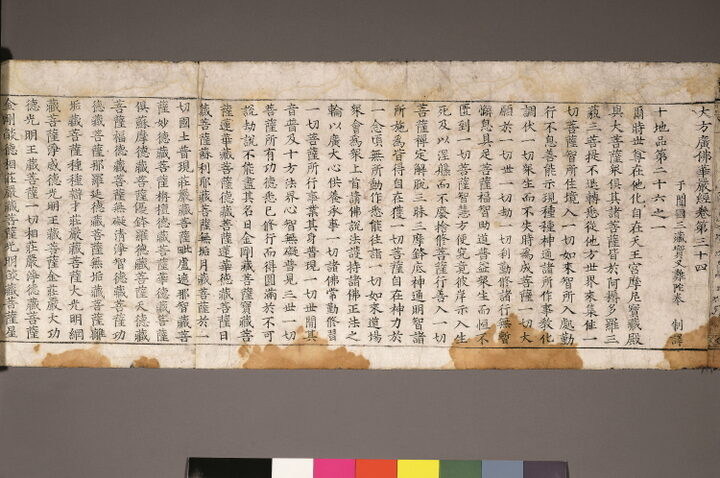 大方廣佛華嚴經卷第三十四
于闐國三藏實叉難陀奉 制譯
十地品第二十六之一
爾時世尊在他化自在天王宮摩尼寶藏殿
與大菩薩衆俱其諸菩薩皆於阿耨多羅三
藐三菩提不退轉悉從他方世界來集住一
切菩薩智所住境入一切如來智所入處勤
行不息善能示現種種神通諸所作事教化
調伏一切衆生而不失時爲成菩薩一切大
願於一切世一切劫一切刹勤修諸行無暫
懈息具足菩薩福智助道普益衆生而恒不
匱到一切菩薩智慧方便究竟彼岸示入生
死及以涅槃而不廢捨修菩薩行善入一切
菩薩禪定解脫三昧三摩鉢底神通明智諸
所施爲皆得自在獲一切菩薩自在神力於
一念頃無所動作悉能往詣一切如來道場
衆會爲衆上首請佛說法護持諸佛正法之
輪以廣大心供養承事一切諸佛常勤修習
一切菩薩所行事業其身普現一切世間其
音普及十方法界心智無礙普見三世一切
菩薩所有功德悉已修行而得圓滿於不可
說劫說不能盡其名曰金剛藏菩薩寶藏菩
薩蓮華藏菩薩德藏菩薩蓮華德藏菩薩日
藏菩薩蘇利耶藏菩薩無垢月藏菩薩於一
切國土普現莊嚴藏菩薩毗盧遮那智藏菩
薩妙德藏菩薩栴檀德藏菩薩華德藏菩薩
俱蘇摩德藏菩薩優鉢羅德藏菩薩天德藏
菩薩福德藏菩薩無礙清淨智德藏菩薩功
德藏菩薩那羅延德藏菩薩無垢藏菩薩離
垢藏菩薩種種辯才莊嚴藏菩薩大光明網
藏菩薩淨威德光明王藏菩薩金莊嚴大功
德光明王藏菩薩一切相莊嚴淨德藏菩薩
金剛焰德相莊嚴藏菩薩光明焰藏菩薩星